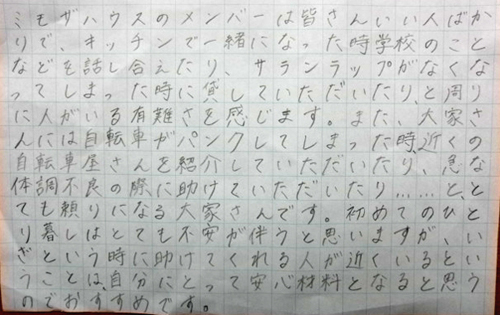 ミモザハウスのメンバーは皆さんいい人ばか
りで、キッチンで一緒になった時学校のこと
などを話し合えたり、サランラップがなくな
ってしまった時に貸していただいたり、と周り
に人がいる有難さを感じます。また、大家さ
んには自転車がパンクしてしまった時、近くの
自転車屋さんを紹介していただいたり、急な
体調不良の際に助けていただいたり……と、と
ても頼りになる大家さんです。初めてのひと
り暮しはとても不安が伴うと思いますが、い
ざという時に助けてくれる人が近くいるとい
うことは、自分にとって安心材料となると思う
のでおすすめです。